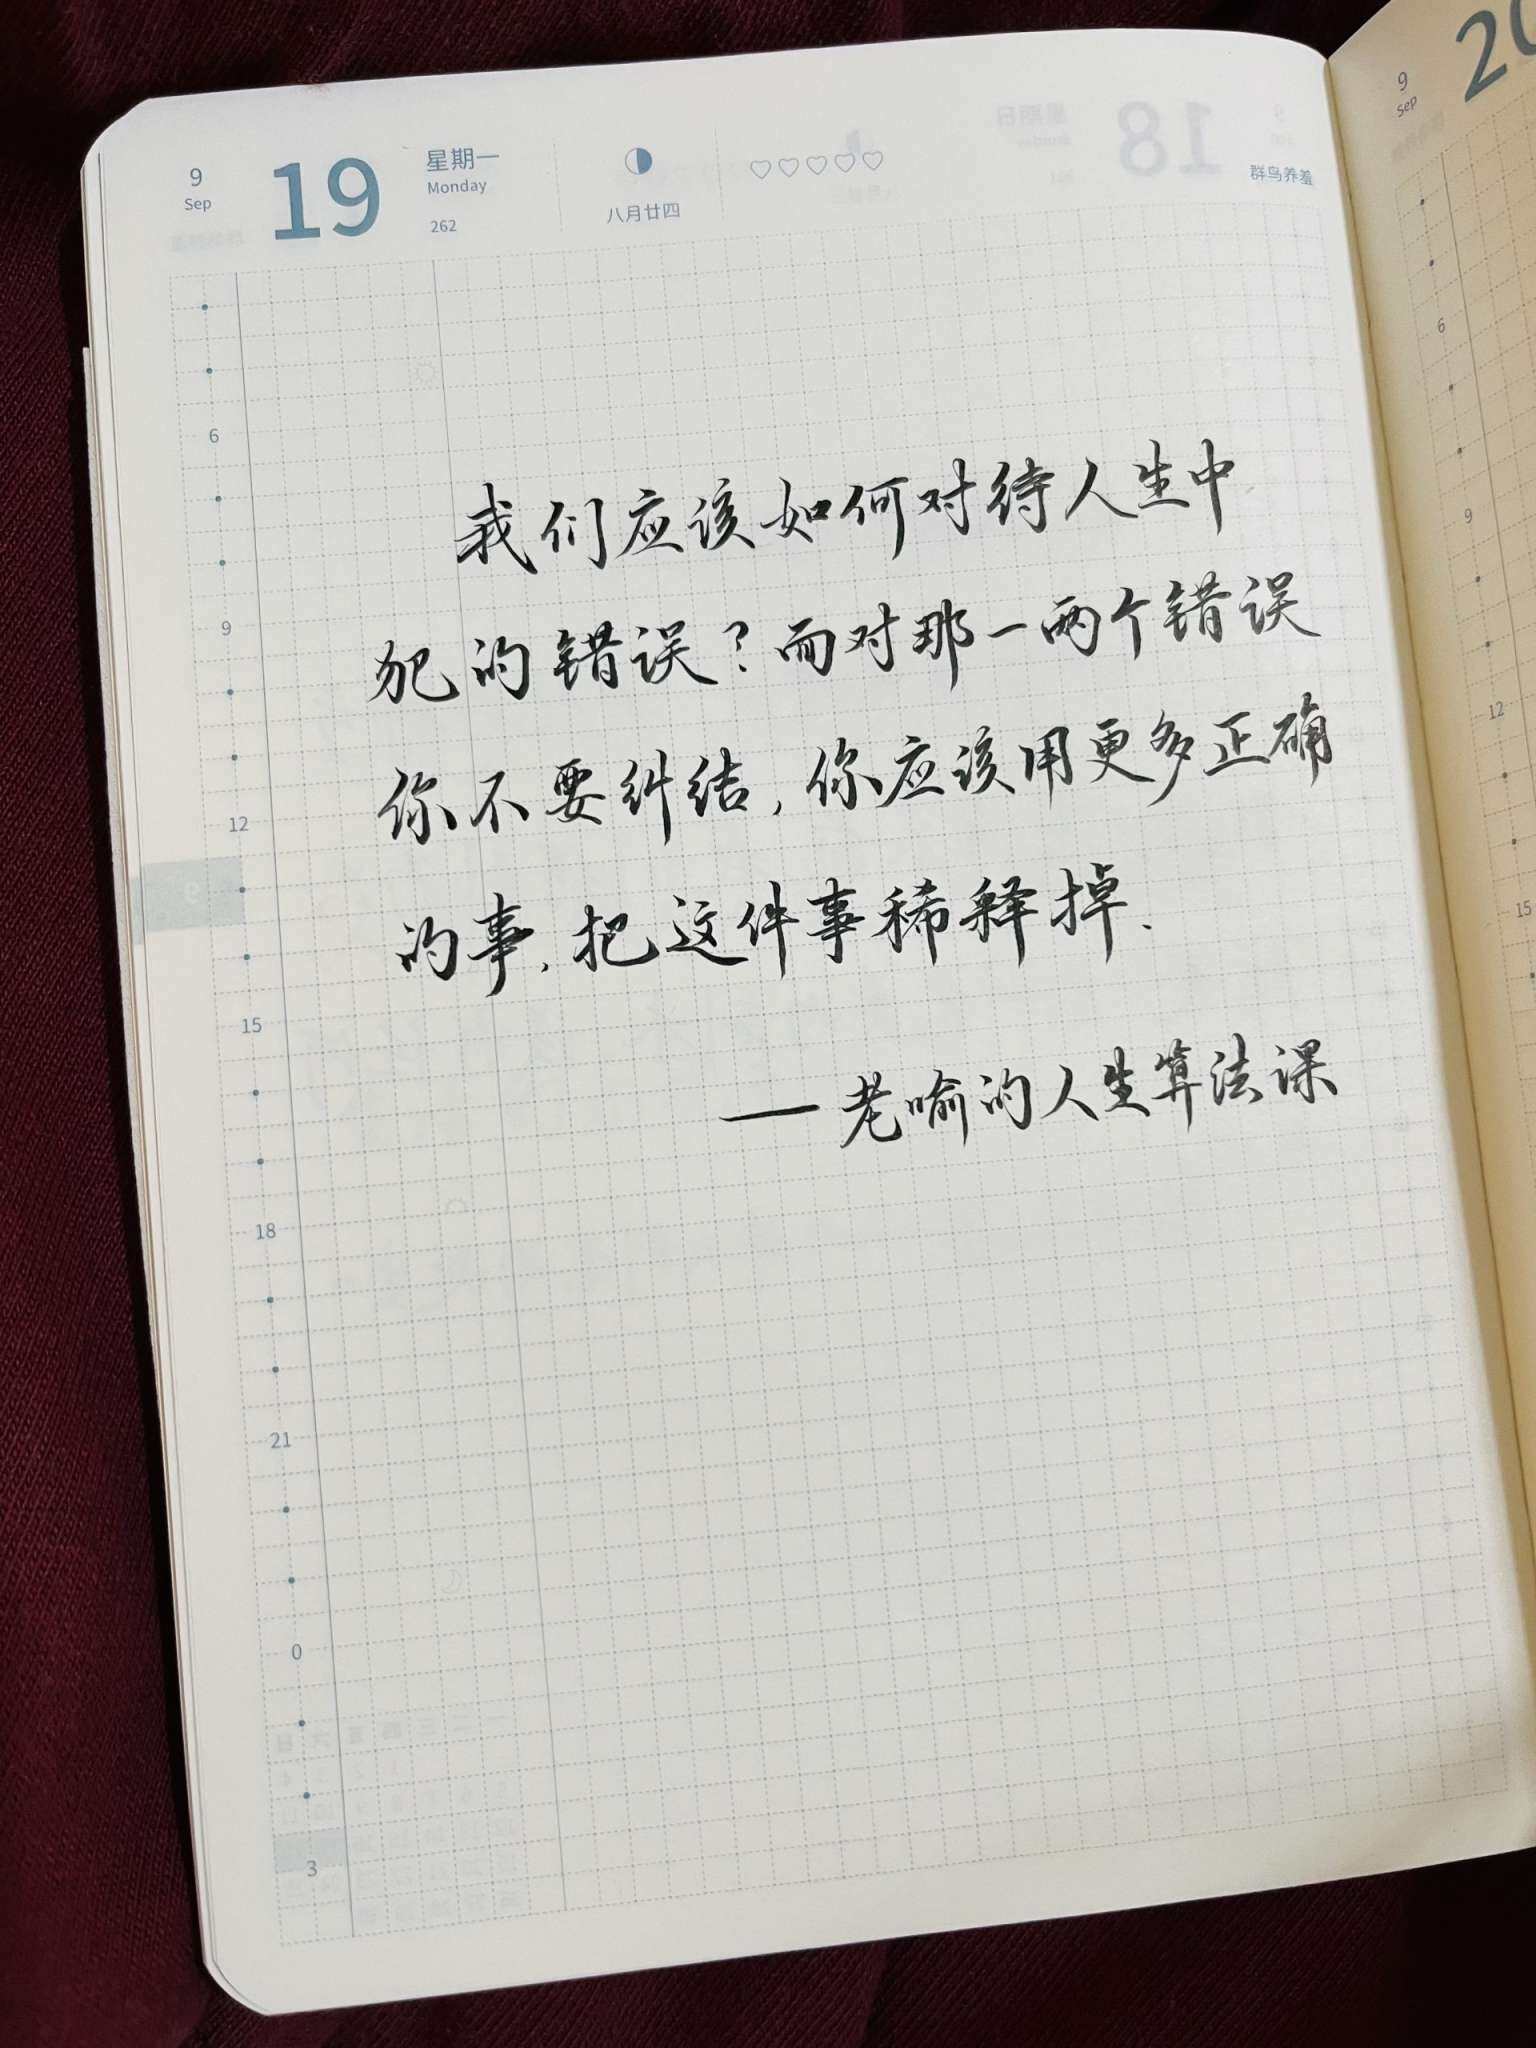 9
Sep
19
星期一
Monday
262
八月廿四
群鸟养羞
9
Sep
我们应该如何对待人生中
犯的错误？而对那一两个错误
你不要纠结，你应该用更多正确
的事，把这件事稀释掉．
——老喻的人生算法课
6
9
12
15
18
21
0
3
9
6
9
12
15